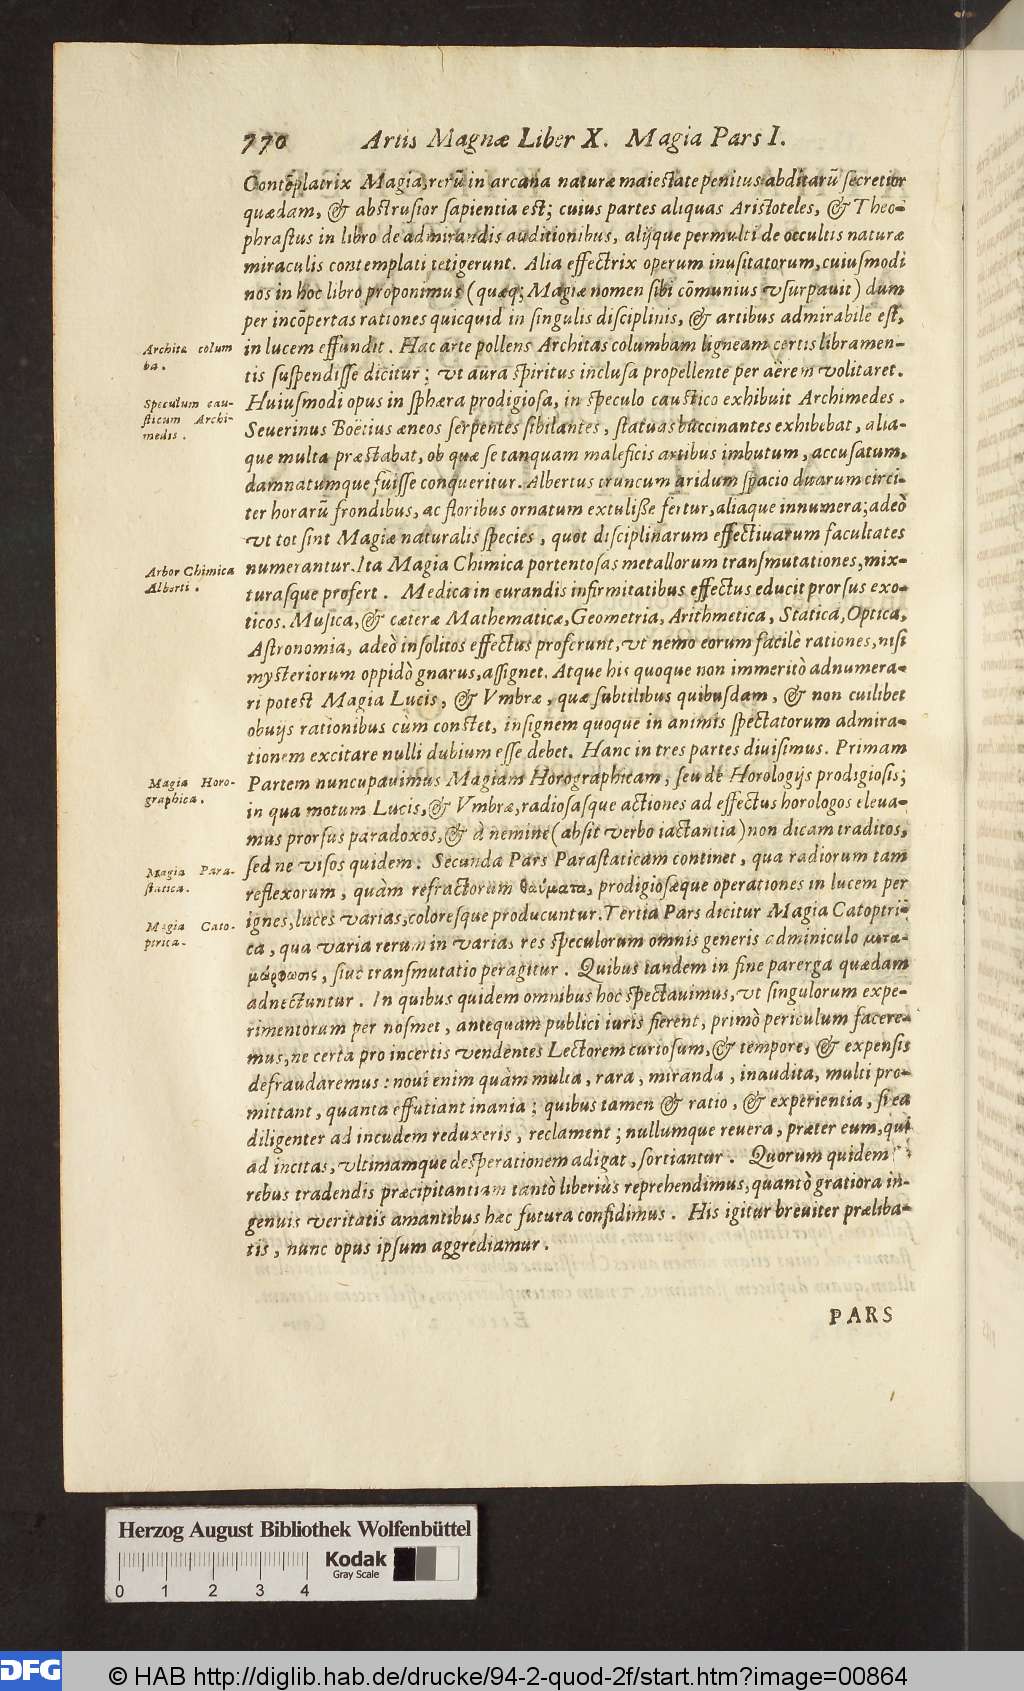 770 Artis Magnæ Liber X. Magia Pars I.
Contẽplatrix Magia, rerũ in arcana naturæ maiestate penitus abditarũ secretior
quædam, & abstrusior sapientia est; cuius partes aliquas Aristoteles, & Theo-
phrastus in libro de admirandis auditionibus, alijque permulti de occultis naturæ
miraculis contemplati tetigerunt. Alia effectrix operum inusitatorum, cuiusmodi
nos in hoc libro proponimus (quæq; Magiæ nomen sibi cõmunius vsurpauit) dum
per incõpertas rationes quicquid in singulis disciplinis, & artibus admirabile est,
Architæ colum
ba.
in lucem effundit. Hac arte pollens Architas columbam ligneam certis libramen-
tis suspendisse dicitur; vt aura spiritus inclusa propellente per aërem volitaret.
Speculum cau-
sticum Archi-
medis.
Huiusmodi opus in sphæra prodigiosa, in speculo caustico exhibuit Archimedes.
Seuerinus Boëtius æneos serpentes sibilantes, statuas buccinantes exhibebat, alia-
que multa præstabat, ob quæ se tanquam maleficis artibus imbutum, accusatum,
damnatumque fuisse conqueritur. Albertus truncum aridum spacio duarum circi-
ter horarũ frondibus, ac floribus ornatum extulisse fertur, aliaque innumera; adeò
vt tot sint Magiæ naturalis species, quot disciplinarum effectiuarum facultates
Arbor Chimica
Alberti.
numerantur. Ita Magia Chimica portentosas metallorum transmutationes, mix-
turasque profert. Medica in curandis infirmitatibus effectus educit prorsus exo-
ticos. Musica, & cæteræ Mathematicæ, Geometria, Arithmetica, Statica, Optica,
Astronomia, adeò insolitos effectus proferunt, vt nemo eorum facilè rationes, nisi
mysteriorum oppidò gnarus, assignet. Atque his quoque non immeritò adnumera-
ri potest Magia Lucis, & Vmbræ, quæ subtilibus quibusdam, & non cuilibet
obuijs rationibus cùm constet, insignem quoque in animis spectatorum admira-
tionem excitare nulli dubium esse debet. Hanc in tres partes diuisimus. Primam
Magia Horo-
graphica.
Partem nuncupauimus Magiam Horographicam, seu de Horologijs prodigiosis;
in qua motum Lucis, & Vmbræ, radiosasque actiones ad effectus horologos eleua-
mus prorsus paradoxos, & à nemine (absit verbo iactantia) non dicam traditos,
Magia Para-
statica.
sed ne visos quidem. Secunda Pars Parastaticam continet, qua radiorum tam
reflexorum, quàm refractorum θαύματα, prodigiosæque operationes in lucem per
Magia Cato-
ptrica.
ignes, luces varias, coloresque producuntur. Tertia Pars dicitur Magia Catoptri-
ca, qua varia rerum in varias res speculorum omnis generis adminiculo μετα-
μόρφωσις, siue transmutatio peragitur. Quibus tandem in fine parerga quædam
adnectuntur. In quibus quidem omnibus hoc spectauimus, vt singulorum expe-
rimentorum per nosmet, antequam publici iuris fierent, primò periculum facere-
mus, ne certa pro incertis vendentes Lectorem curiosum, & tempore, & expensis
defraudaremus: noui enim quàm multa, rara, miranda, inaudita, multi pro-
mittant, quanta effutiant inania; quibus tamen & ratio, & experientia, si ea
diligenter ad incudem reduxeris, reclament; nullumque reuera, præter eum, qui
ad incitas, vltimamque desperationem adigat, sortiantur. Quorum quidem
rebus tradendis præcipitantiam tantò liberiùs reprehendimus, quantò gratiora in-
genuis veritatis amantibus hæc futura confidimus. His igitur breuiter præliba-
tis, nunc opus ipsum aggrediamur.
PARS
Herzog August Bibliothek Wolfenbüttel
0 1 2 3 4
Kodak
Gray Scale
DFG
© HAB http://diglib.hab.de/drucke/94-2-quod-2f/start.htm?image=00864